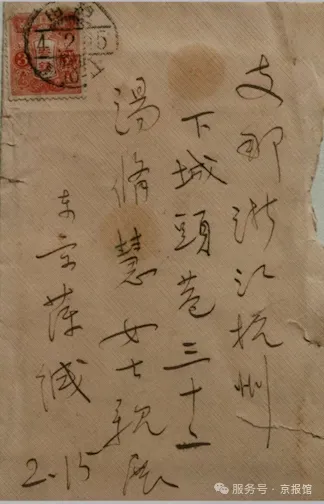 支那浙江杭州
下城頭巷三十二
湯脩慧女士親展
东京萍緘
2.15
服务号 · 京报馆